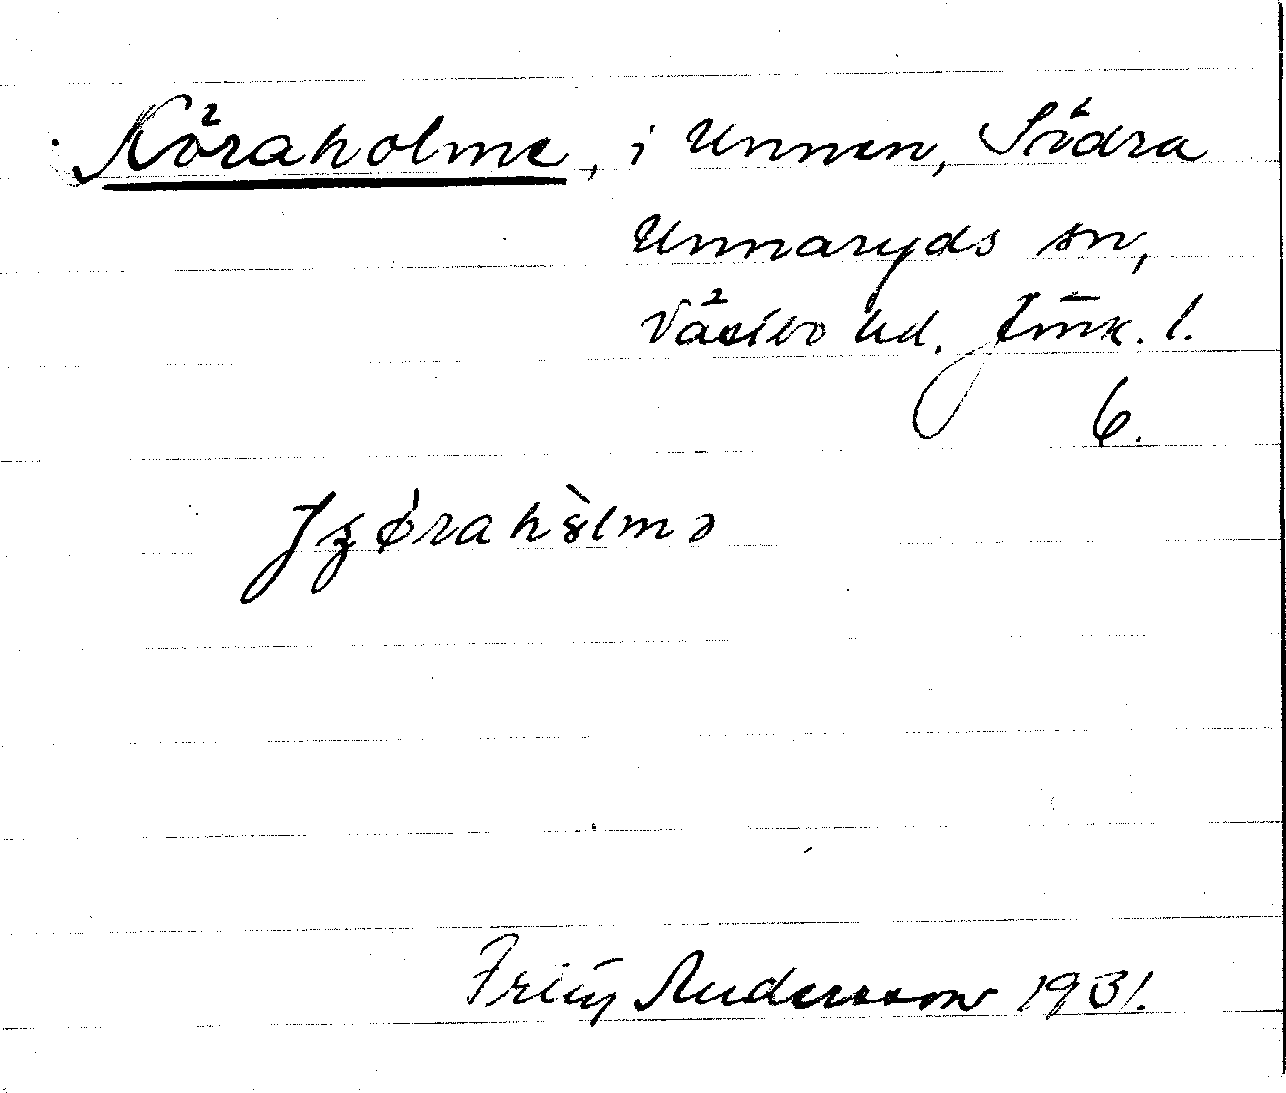 Köraholme, i Unnen, Södra
Unnaryds sn,
Västbo hd. Jönk. l.
6.
Andersson 1931.